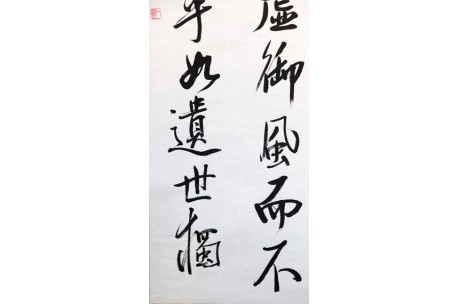 虚御風而不
乎如遺世獨